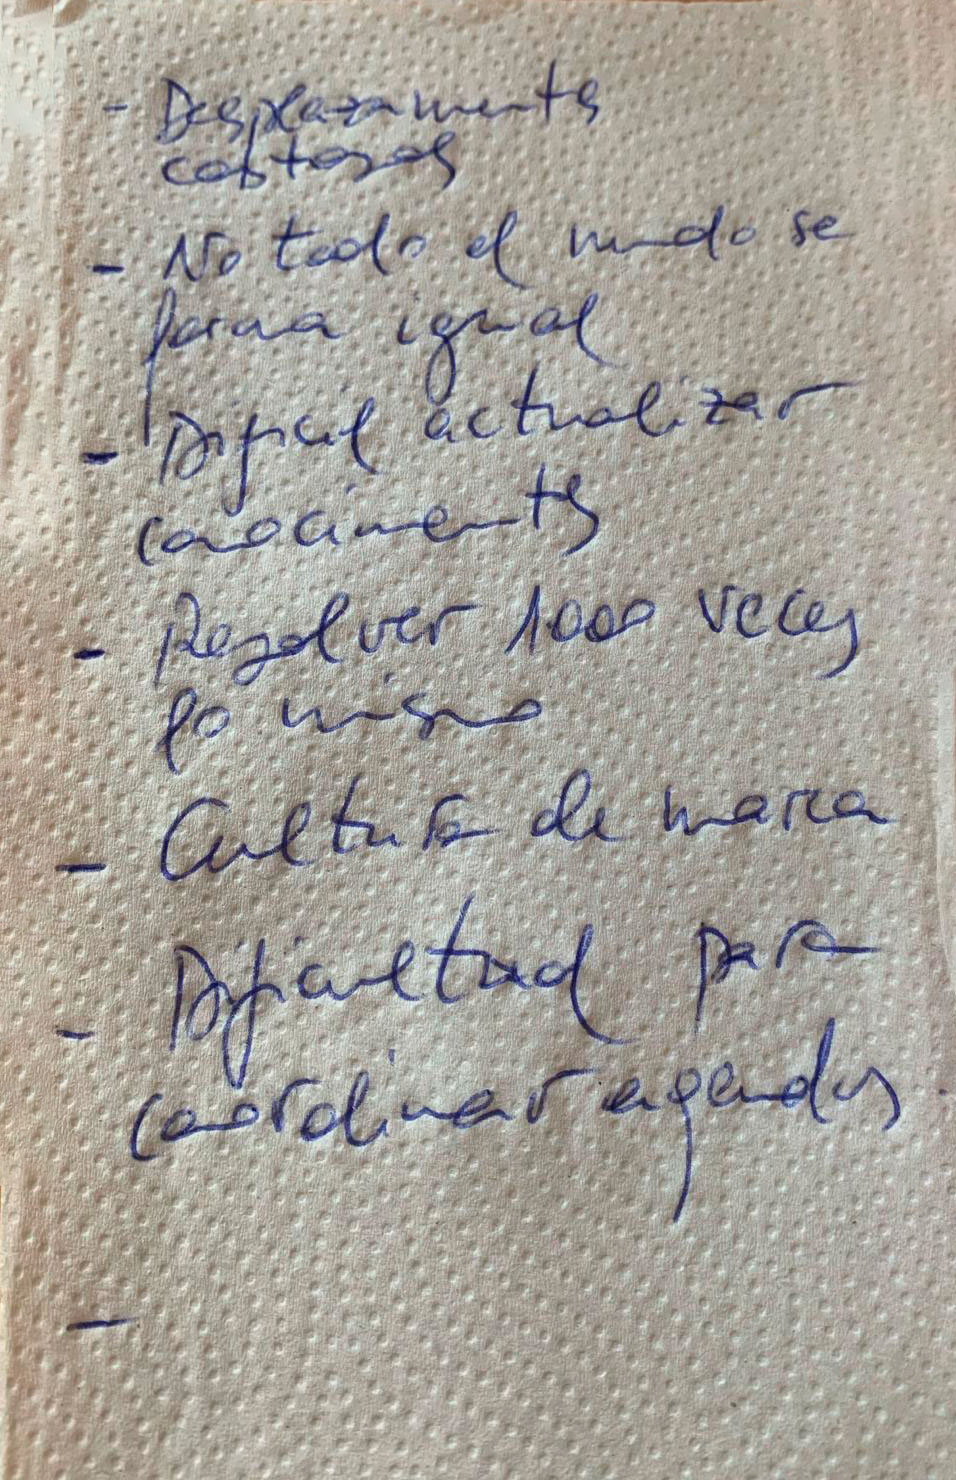 - Desplazamientos
costosos
- No todo el mundo se
forma igual
- Dificil actualizar
conocimientos
- Resolver 1000 veces
lo mismo
- Cultura de marca
- Dificultad para
coordinar agendas.
-